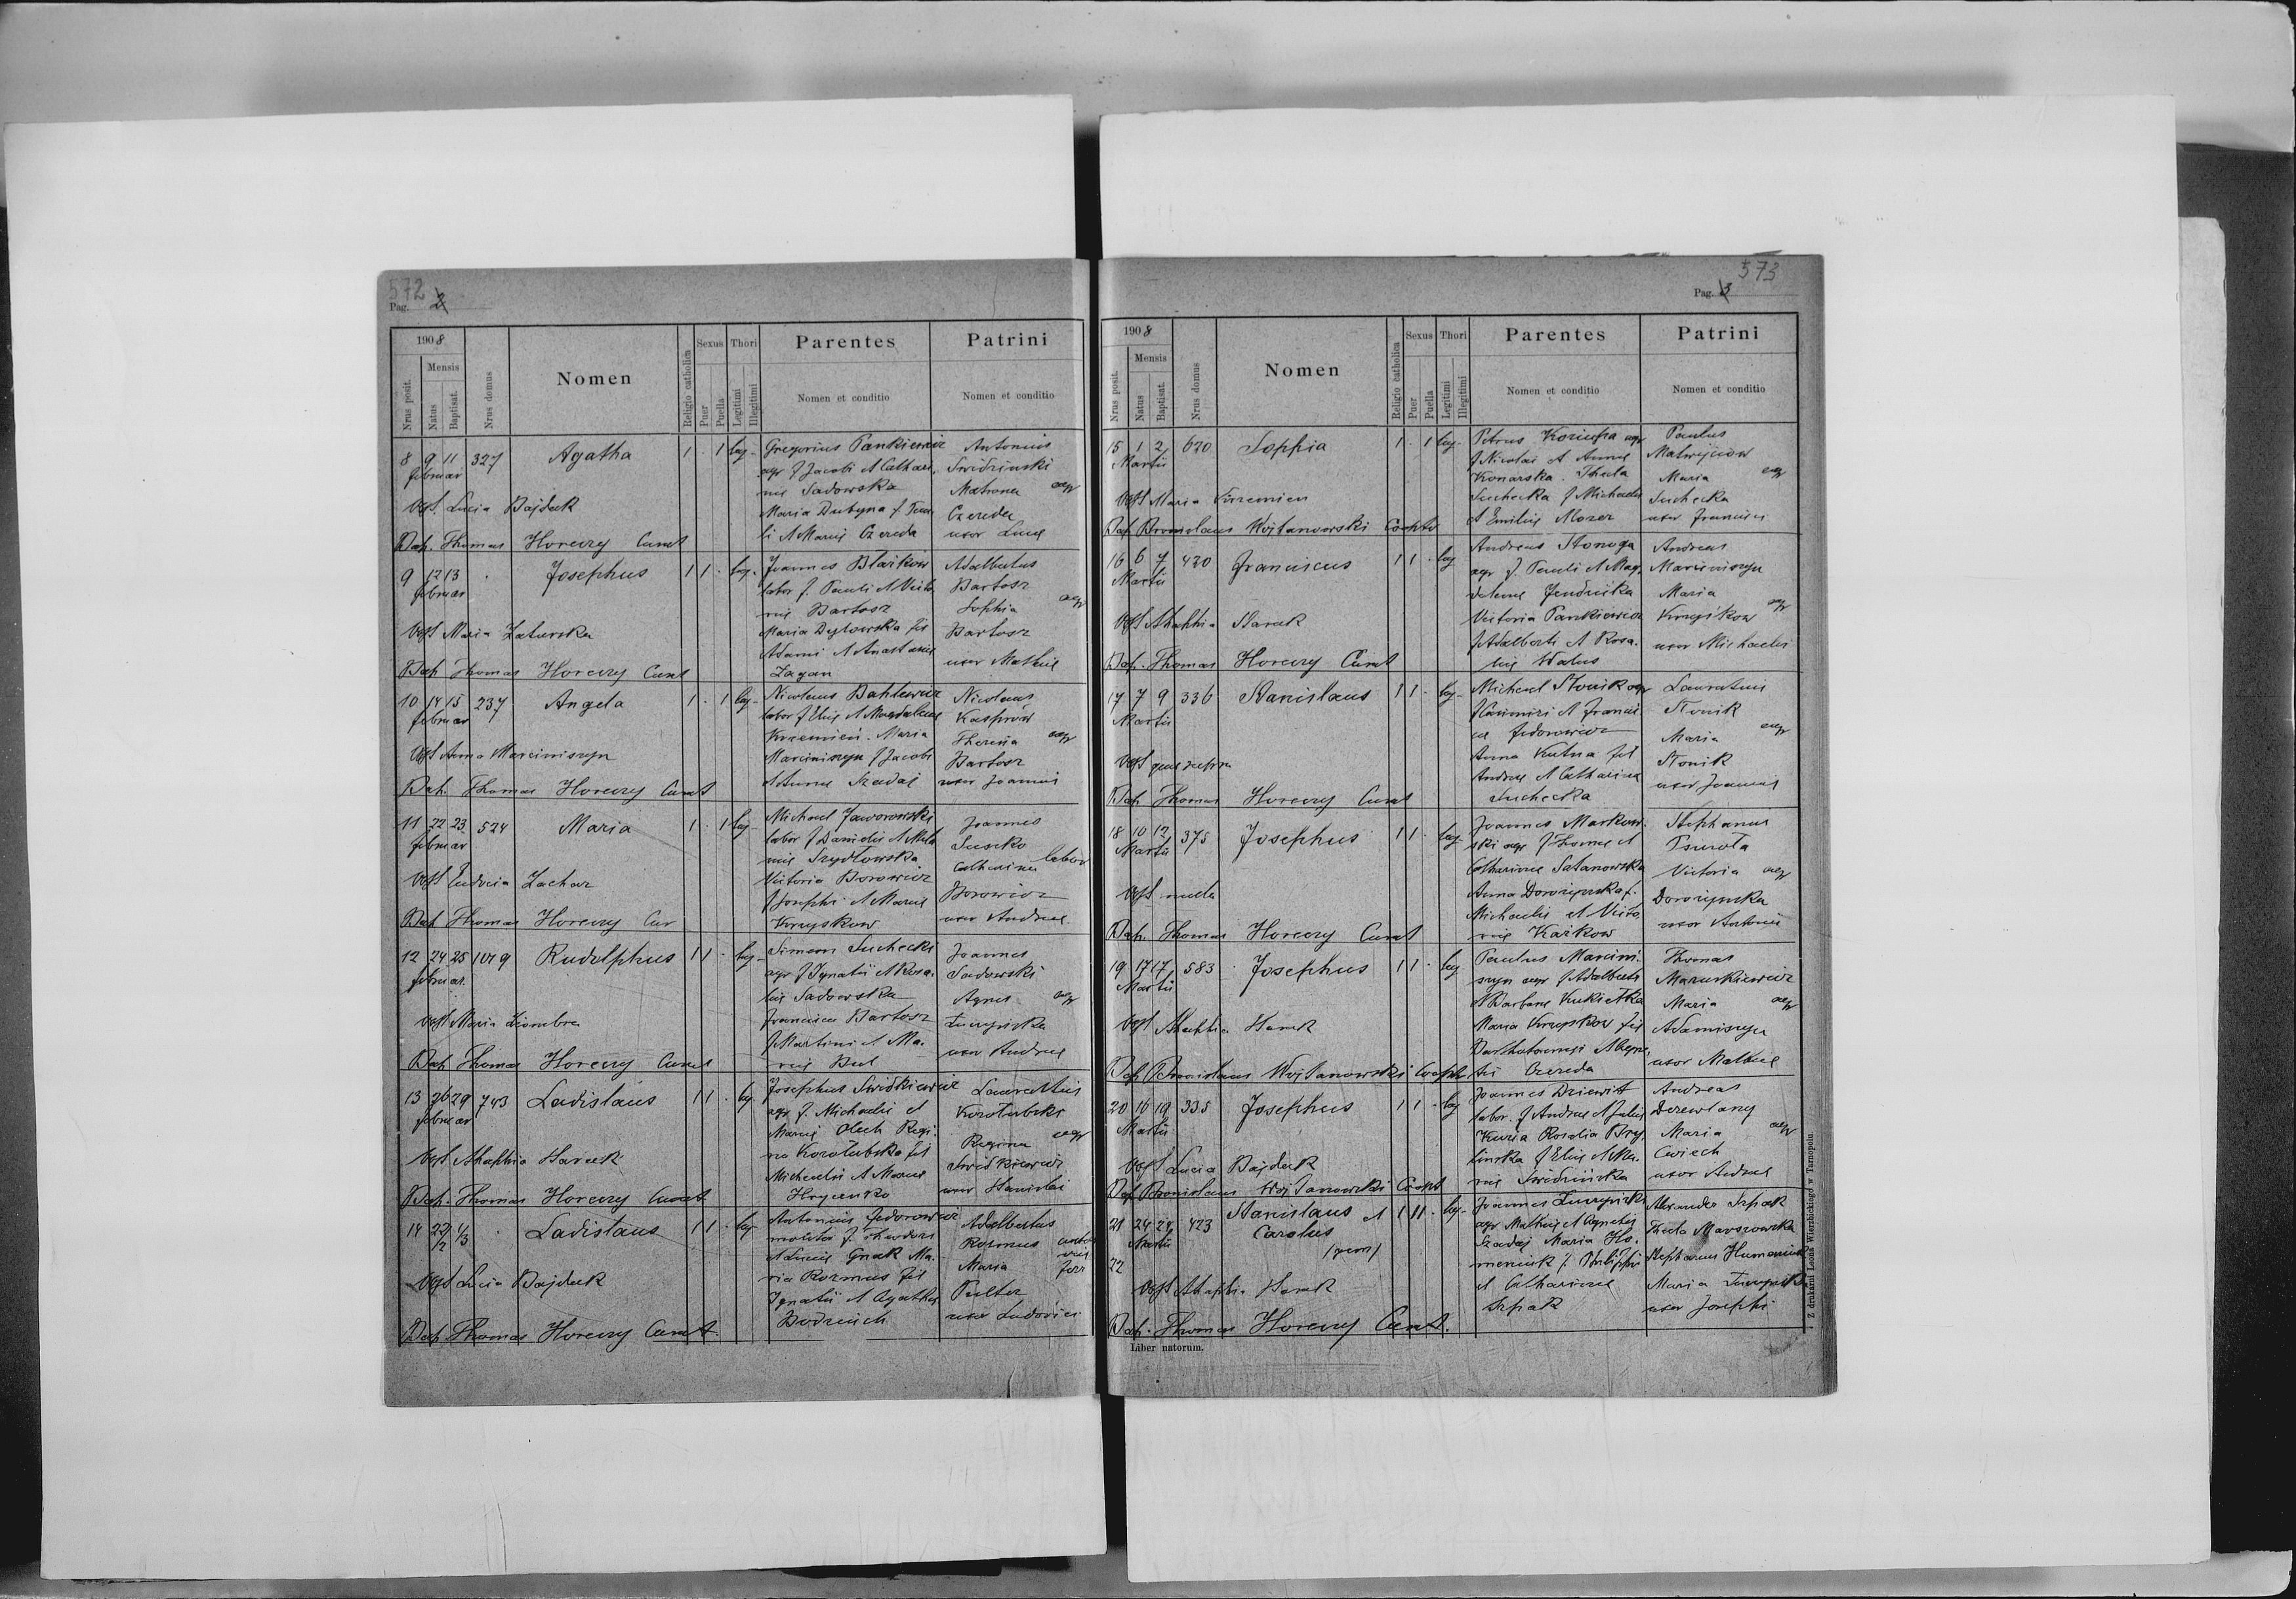 572
Pag. 2
1908
Nrus posit.
Mensis
Natus
Baptisat.
Nrus domus
Nomen
Religio catholica
Sexus
Puer
Puella
Thori
Legitimi
Illegitimi
Parentes
Nomen et conditio
Patrini
Nomen et conditio
8 9 11 327 Agatha 1 . 1 leg.
februar
Gregorius Pankiewicz
agr f Jacobi et Cathari
nae Sadowska
Maria Dubyna f. Pau
li et Mariae Czereda
Antonius
Swidzinski
Matrona agr
Czereda
uxor Lucae
Obst. Lucia Bajdak
Bap. Thomas Horeczy Curat
9 12 13 . Josephus 1 1 . leg.
februar
Joannes Blaikow
labor f. Pauli et Victo
riae Bartosz
Maria Dylowska fil
Adami et Anastasiae
Zagan
Adalbertus
Bartosz
Sophia agr
Bartosz
uxor Mathiae
Obst Maria Zaturska
Bap Thomas Horeczy Curat
10 14 15 237 Angela 1 . 1 leg.
februar
Nicolaus Bahlewicz
labor f Eliae et Magdalenae
Krzemien. Maria
Marciniszyn f Jacobi
et Annae Szadaj
Nicolaus
Kasprow
Theresia agr
Bartosz
uxor Joannis
Obst Anna Marciniszyn
Bap. Thomas Horeczy Curat
11 22 23 524 Maria 1 . 1 leg.
februar
Michael Jaworowski
labor f Danielis et Mela
niae Szydłowska
Victoria Borowicz
f Josephi et Mariae
Kruyskow
Joannes
Suszko
Catharina labor
Borowicz
uxor Andreae
Obst Eudocia Zachar
Bap Thomas Horeczy Cur
12 24 25 1079 Rudolphus 1 1 . leg.
februar
Simeon Suchecki
agr f Ignatii et Rosa
liae Sadowska
Francisca Bartosz
f Martini et Ma
riae But
Joannes
Sadowski
Agnes agr
Luczynska
uxor Andreae
Obst Maria Ziombra
Bap Thomas Horeczy Curat
13 26 29 743 Ladislaus 1 1 . leg.
februar
Josephus Swidkiewicz
agr f. Michaelis et
Mariae Olech Regi
na Korolubska fil
Michaelis et Mariae
Hrycenko
Laurentius
Korolubski
Regina agr
Swidkiewicz
uxor Stanislai
Obst Ahaphia Harak
Bap. Thomas Horeczy Curat
14 22/2 1/3 . Ladislaus 1 1 . leg
Antonius Fedorowicz
molitor f. Theodori
et Luciae Gnak Ma
ria Rozmus fil
Ignatii et Agathae
Budzinich
Adalbertus
Rozmus
Maria
Pulter
uxor Ludovici
Obst Lucia Bajdak
Bap. Thomas Horeczy Curat
573
Pag. 3
1908
Nrus posit.
Mensis
Natus
Baptisat.
Nrus domus
Nomen
Religio catholica
Sexus
Puer
Puella
Thori
Legitimi
Illegitimi
Parentes
Nomen et conditio
Patrini
Nomen et conditio
15 1 2 620 Sophia 1 . 1 leg.
Martii
Petrus Koziupa agr
f Nicolai et Annae
Konarska. Thecla
Suchecka f Michaelis
et Emiliae Mozer
Paulus
Matwejciow
Maria agr
Suchecka
uxor Francisci
Obst Maria Krzemien
Bap Bronislaus Wojtanowski Cooptr
16 6 7 430 Franciscus 1 1 . leg
Martii
Andreas Stonoga
agr f. Pauli et Mag
dalenae Jendruska
Victoria Pankiewicz
f Adalberti et Rosa
liae Walus
Andreas
Marciniszyn
Maria agr
Kruyskow
uxor Michaelis
Obst Ahaphia Harak
Bap. Thomas Horeczy Curat
17 7 9 336 Stanislaus 1 1 . leg.
Martii
Michael Słonik agr
f Casimiri et Francis
cae Fedorowicz
Anna Kutna fil
Andreae et Catharinae
Suchecka
Laurentius
Słonik
Maria agr
Słonik
uxor Joannis
Bap Thomas Horeczy Curat
18 10 12 375 Josephus 1 1 . leg.
Martii
Joannes Markow
ski agr f Thomae et
Catharinae Satanowska
Anna Dorozynska f.
Michaelis et Victo
riae Kazkow
Stephanus
Psurota
Victoria agr
Dorozynska
uxor Antonii
Obst nulla
Bap. Thomas Horeczy Curat
19 17 17 583 Josephus 1 1 . leg
Martii
Paulus Marcini
szyn agr f Adalberti
et Barbarae Kukietka
Maria Kruyskow fil
Bartholomaei et Agne
tis Czereda
Thomas
Mazurkiewicz
Maria agr
Adamiszyn
uxor Mathiae
Obst Ahaphia Harak
Bap Bronislaus Wojtanowski Coopt
20 16 19 335 Josephus 1 1 . leg
Martii
Joannes Dziewit
labor. f Andreae et Juliae
Kuzia Rosalia Bry
linska f Eliae et Ma
riae Swidzinska
Andreas
Derewlany
Maria agr
Cwiech
uxor Andreae
Obst Lucia Bajdak
Bap Bronislaus Wojtanowski Coopt
21 24 24 423 Stanislaus et 1 11 . leg.
Martii Carolus
22 /gem/
Joannes Luczynski
agr Mathiae et Agnetis
Szadaj Maria Ho
meniuk f. Philippi
et Catharinae
Szpak
Alexander Szpak
Thecla Marszowska
Stephanus Humeniuk
Maria Luczynska
uxor Josephi
Obst Ahaphia Harak
Bap. Thomas Horeczy Curat.
Liber natorum.
Z drukarni Leona Wierzbickiego w Tarnopolu.